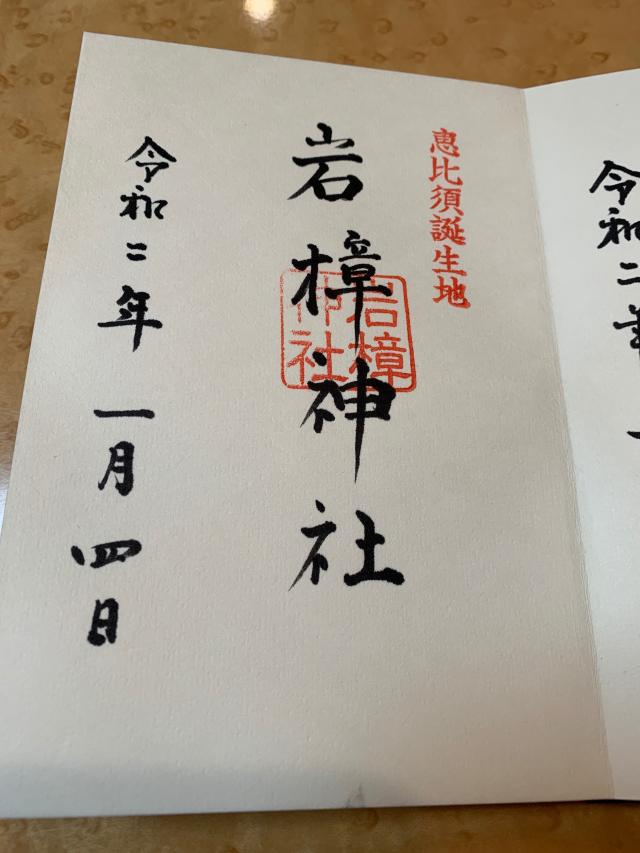 令和二
恵比須誕生地
岩樟神社
岩樟
神社
令和二年 一月 四日